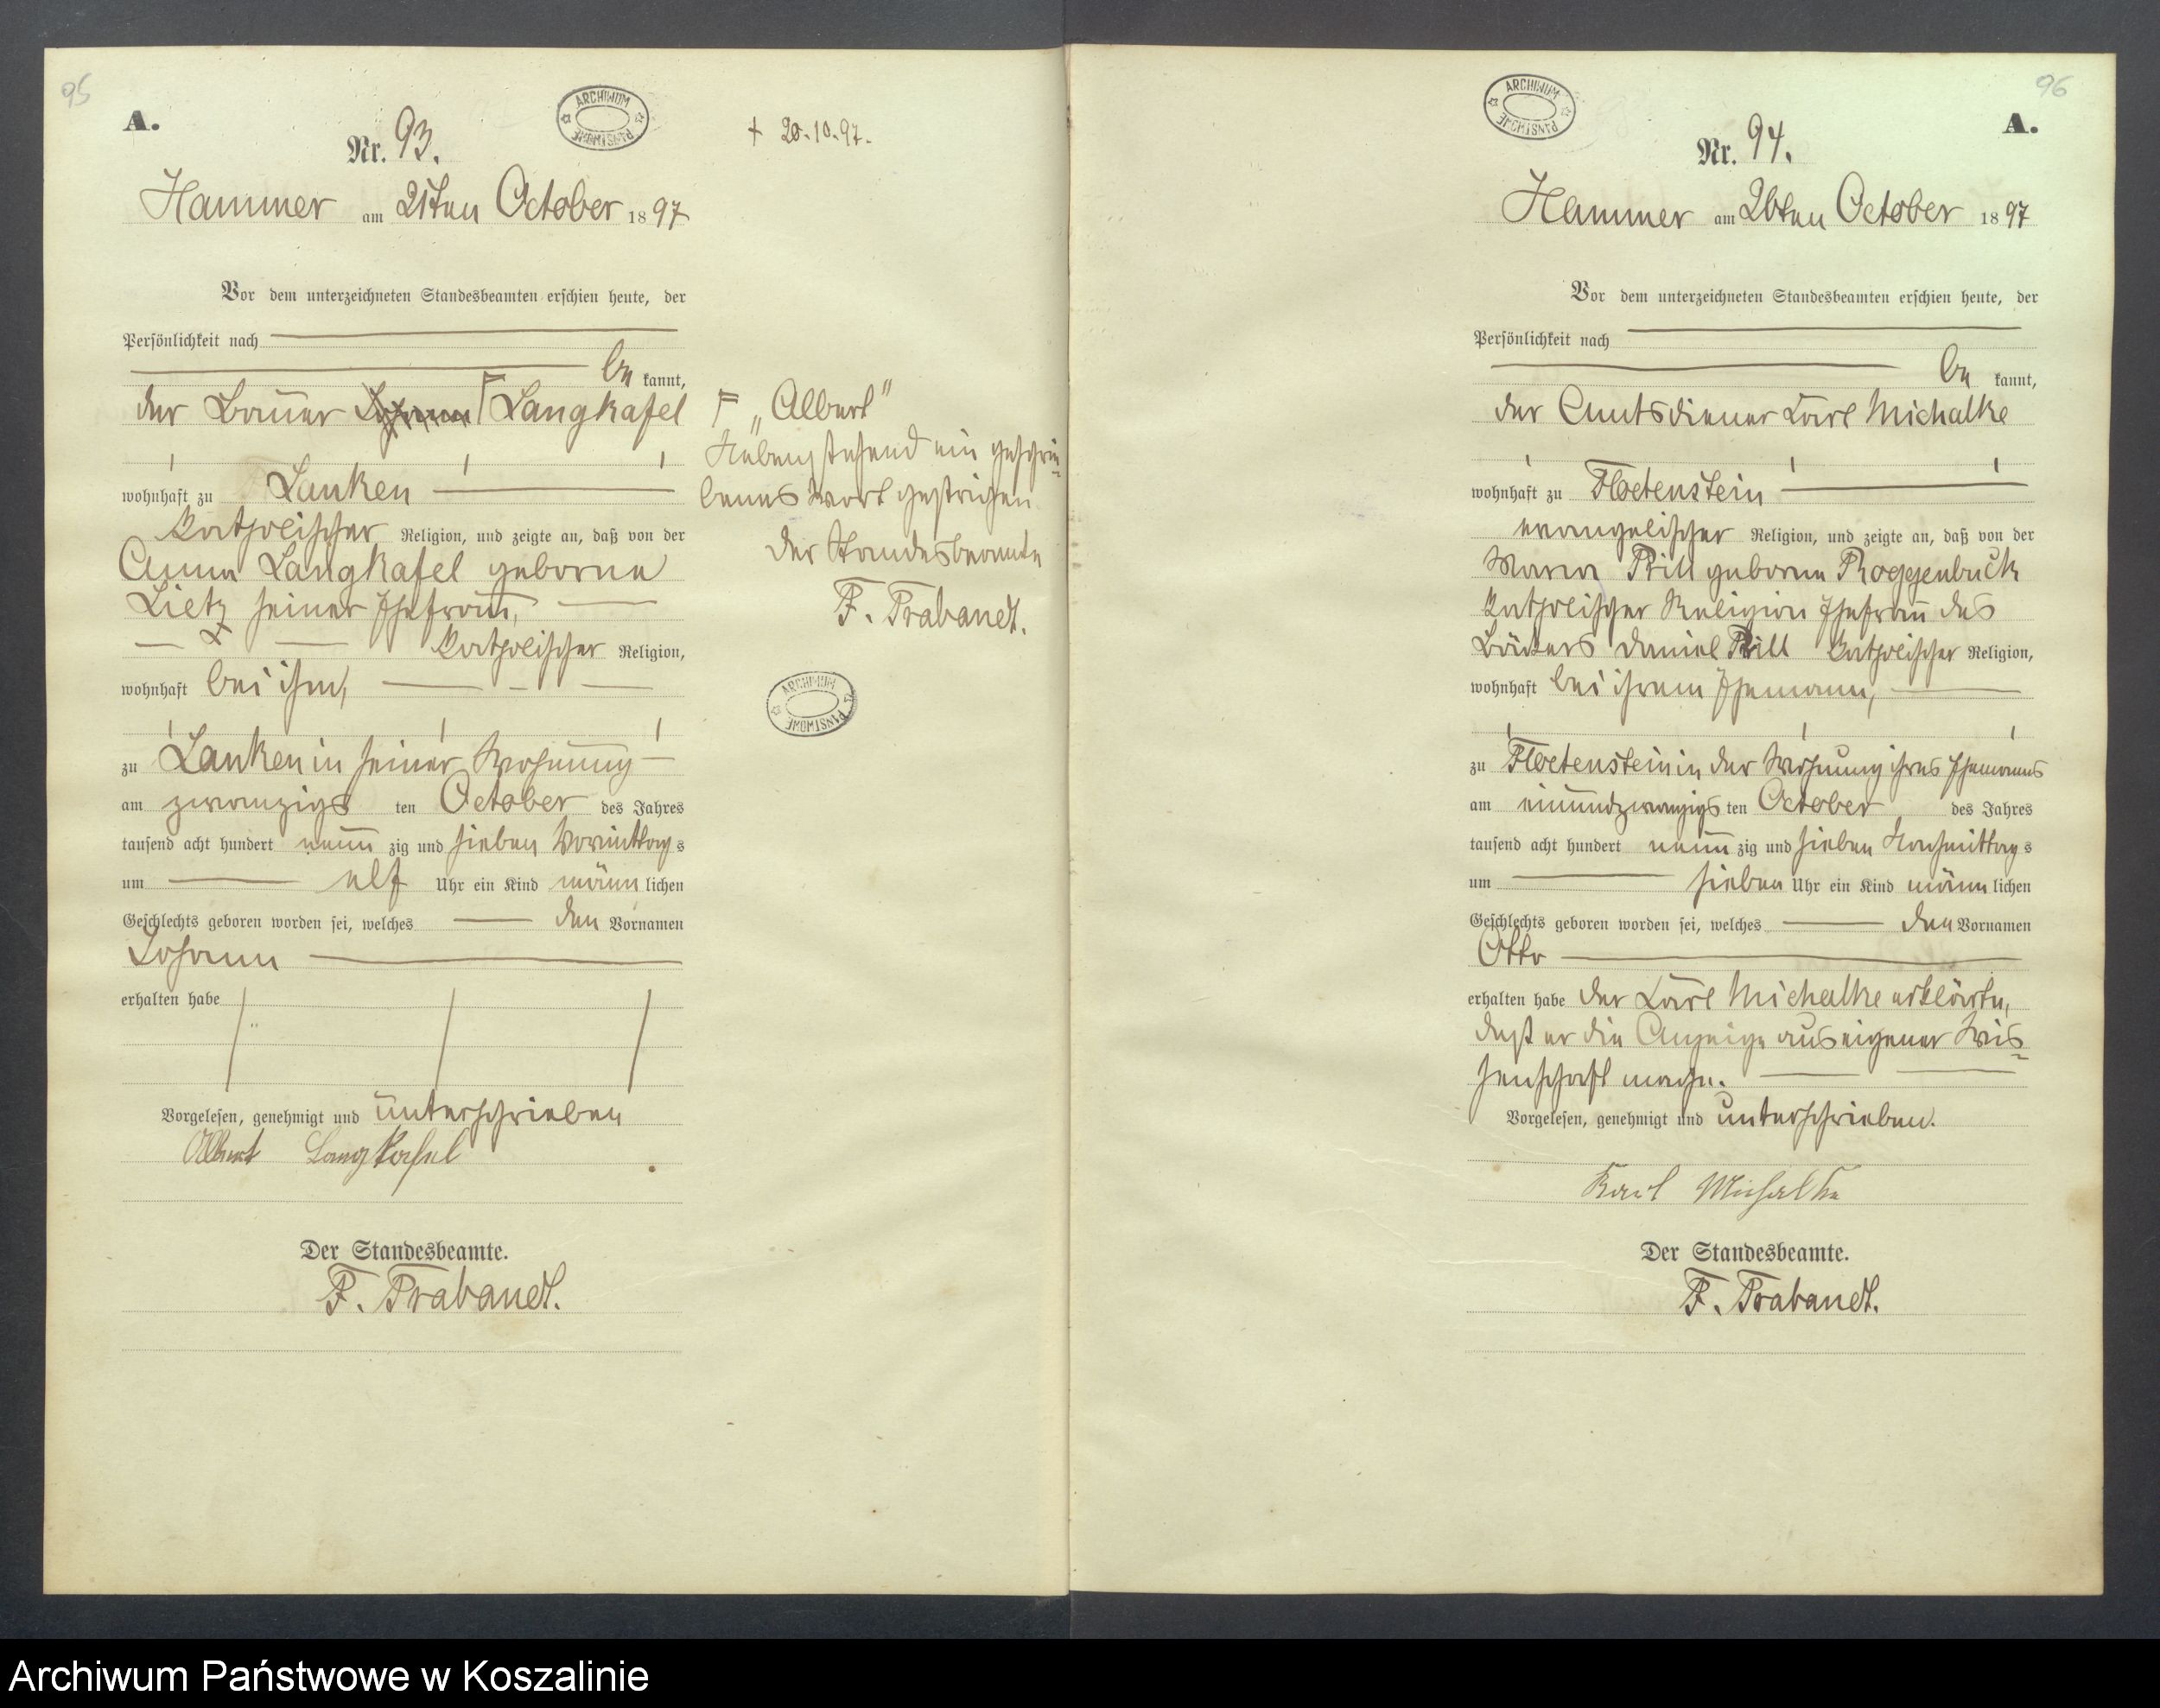 95
A.
ARCHIWUM PAŃSTWOWE
Nr. 93.
+ 20.10.97.
Hammer am 21ten October 1897
Vor dem unterzeichneten Standesbeamten erschien heute, der
Persönlichkeit nach
be kannt,
der Bauer Johann Γ Langkafel
wohnhaft zu Lanken
katholischer Religion, und zeigte an, daß von der
Anna Langkafel geborne
Lietz seiner Ehefrau,
katholischer Religion,
wohnhaft bei ihm,
zu Lanken in seiner Wohnung
am zwanzigs ten October des Jahres
tausend acht hundert neun zig und sieben Vormittag s
um elf Uhr ein Kind männ lichen
Geschlechts geboren worden sei, welches den Vornamen
Johann
erhalten habe
Vorgelesen, genehmigt und unterschrieben
Albert Langkafel
Der Standesbeamte.
F. Trabandt.
Γ „Albert"
Nebenstehend ein geschrie-
benes Wort gestrichen
Der Standesbeamte
F. Trabandt.
ARCHIWUM PAŃSTWOWE
96
A.
ARCHIWUM PAŃSTWOWE
Nr. 94.
Hammer am 26ten October 1897
Vor dem unterzeichneten Standesbeamten erschien heute, der
Persönlichkeit nach
be kannt,
der Amtsdiener Karl Michalke
wohnhaft zu Floetenstein
evangelischer Religion, und zeigte an, daß von der
Maria Prill geborne Roggenbuck
katholischer Religion Ehefrau des
Daniel Prill katholischer Religion,
wohnhaft bei ihrem Ehemann,
zu Floetenstein in der Wohnung ihres Ehemannes
am einundzwanzigs ten October des Jahres
tausend acht hundert neun zig und sieben Nachmittag s
um sieben Uhr ein Kind männ lichen
Geschlechts geboren worden sei, welches den Vornamen
Otto
erhalten habe der Karl Michalke erklärte,
daß er die Anzeige aus eigener Wis-
senschaft mache.
Vorgelesen, genehmigt und unterschrieben.
Karl Michalke
Der Standesbeamte.
F. Trabandt.
Archiwum Państwowe w Koszalinie